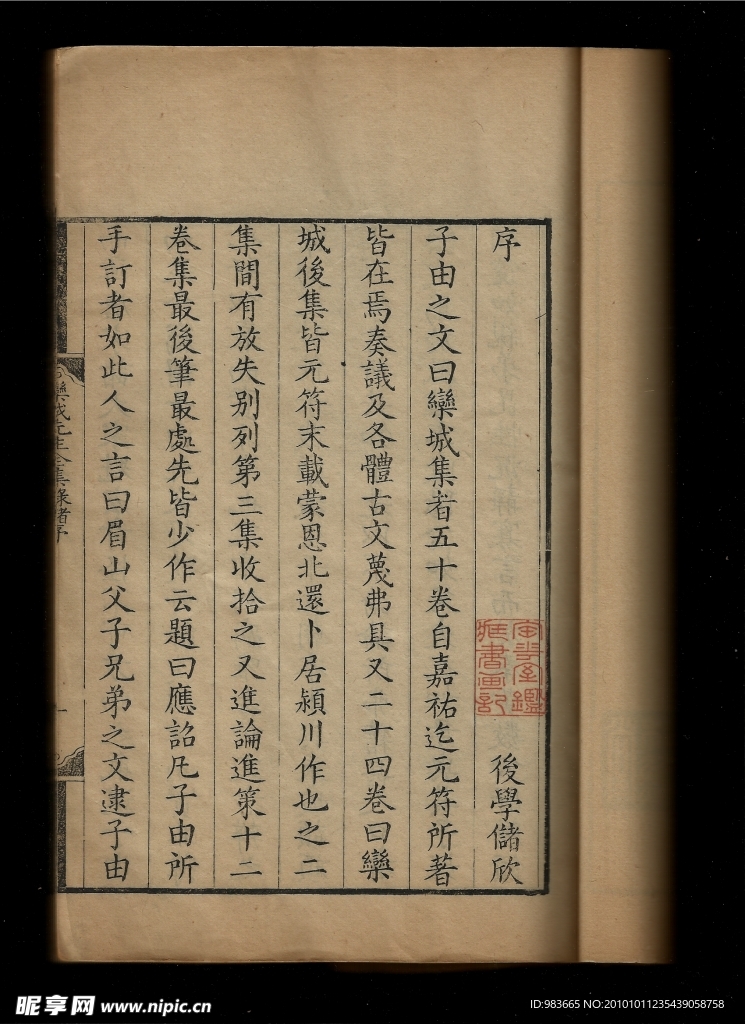 序
後學儲欣
子由之文曰欒城集者五十卷自嘉祐迄元符所著
皆在焉奏議及各體古文蔑弗具又二十四卷曰欒
城後集皆元符末載蒙恩北還卜居潁川作也之二
集間有放失別列第三集收拾之又進論進策十二
卷集最後筆最處先皆少作云題曰應詔凡子由所
手訂者如此人之言曰眉山父子兄弟之文逮子由
昵享网 www.nipic.cn
ID:983665 NO:20101011235439058758